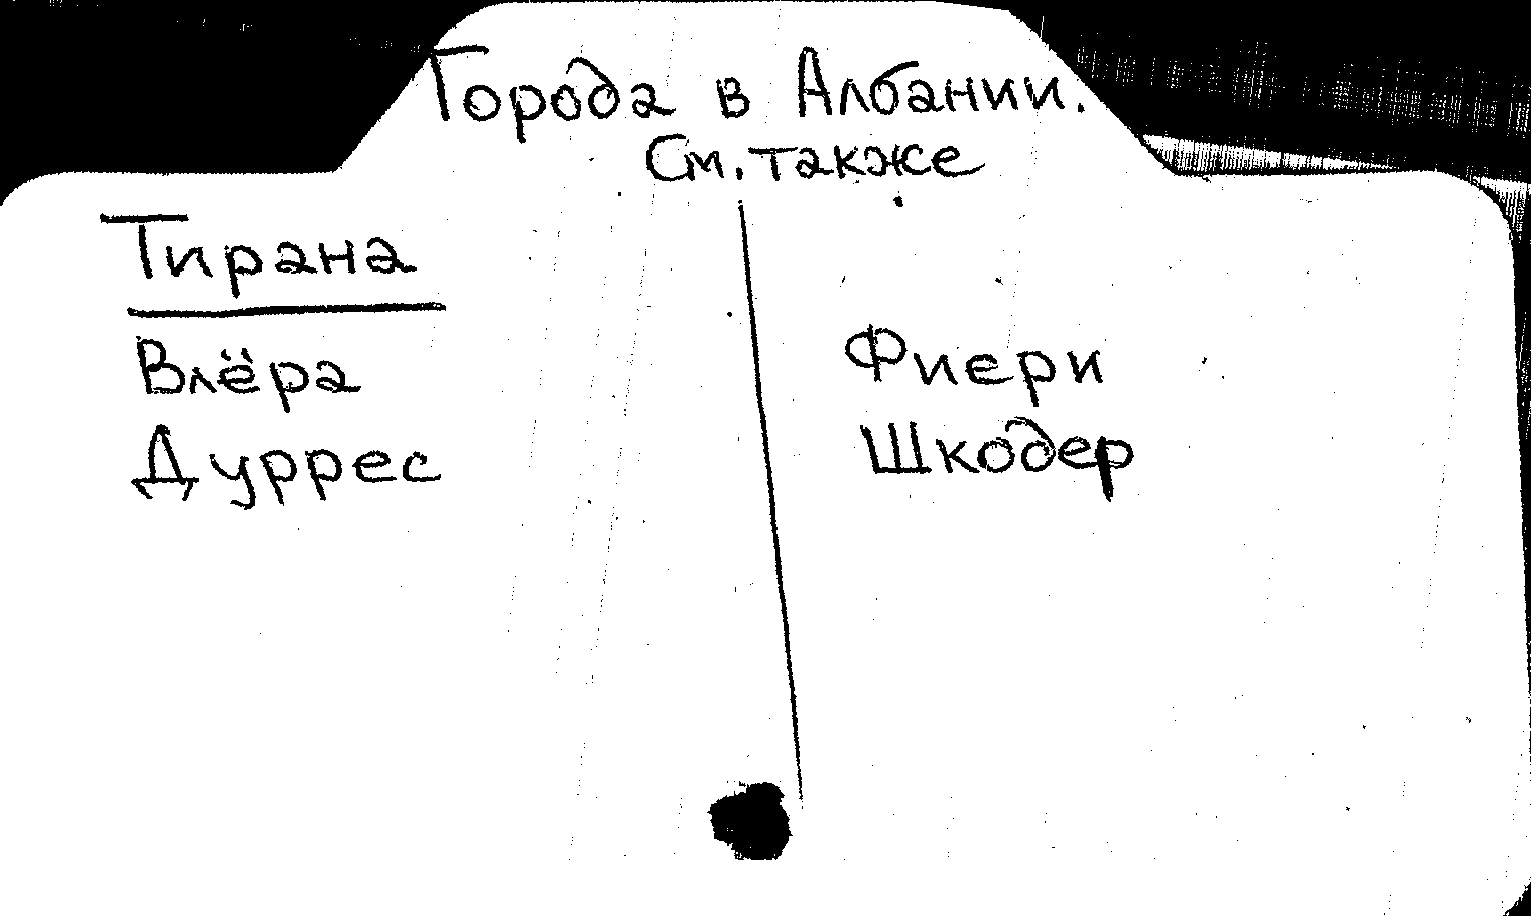 Города в Албании.
См. также
Тирана
Влёра
Дуррес
Фиери
Шкодер